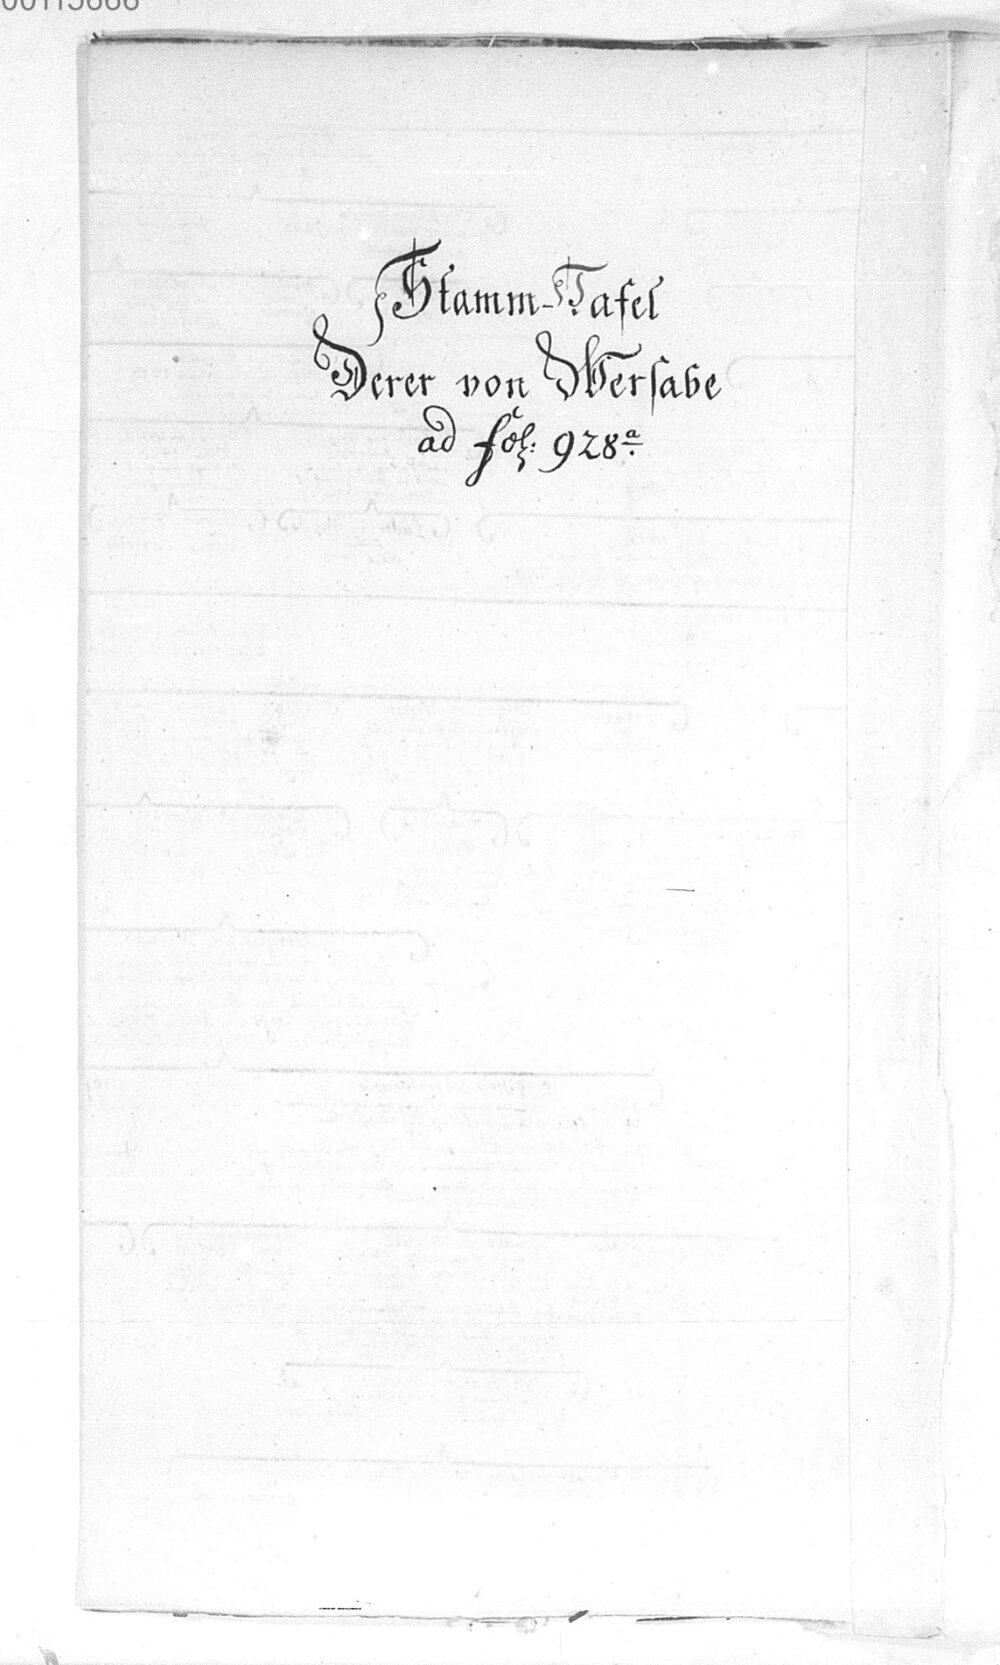 00113666
Stamm-Tafel
Derer von Wersabe
ad fol: 928ª